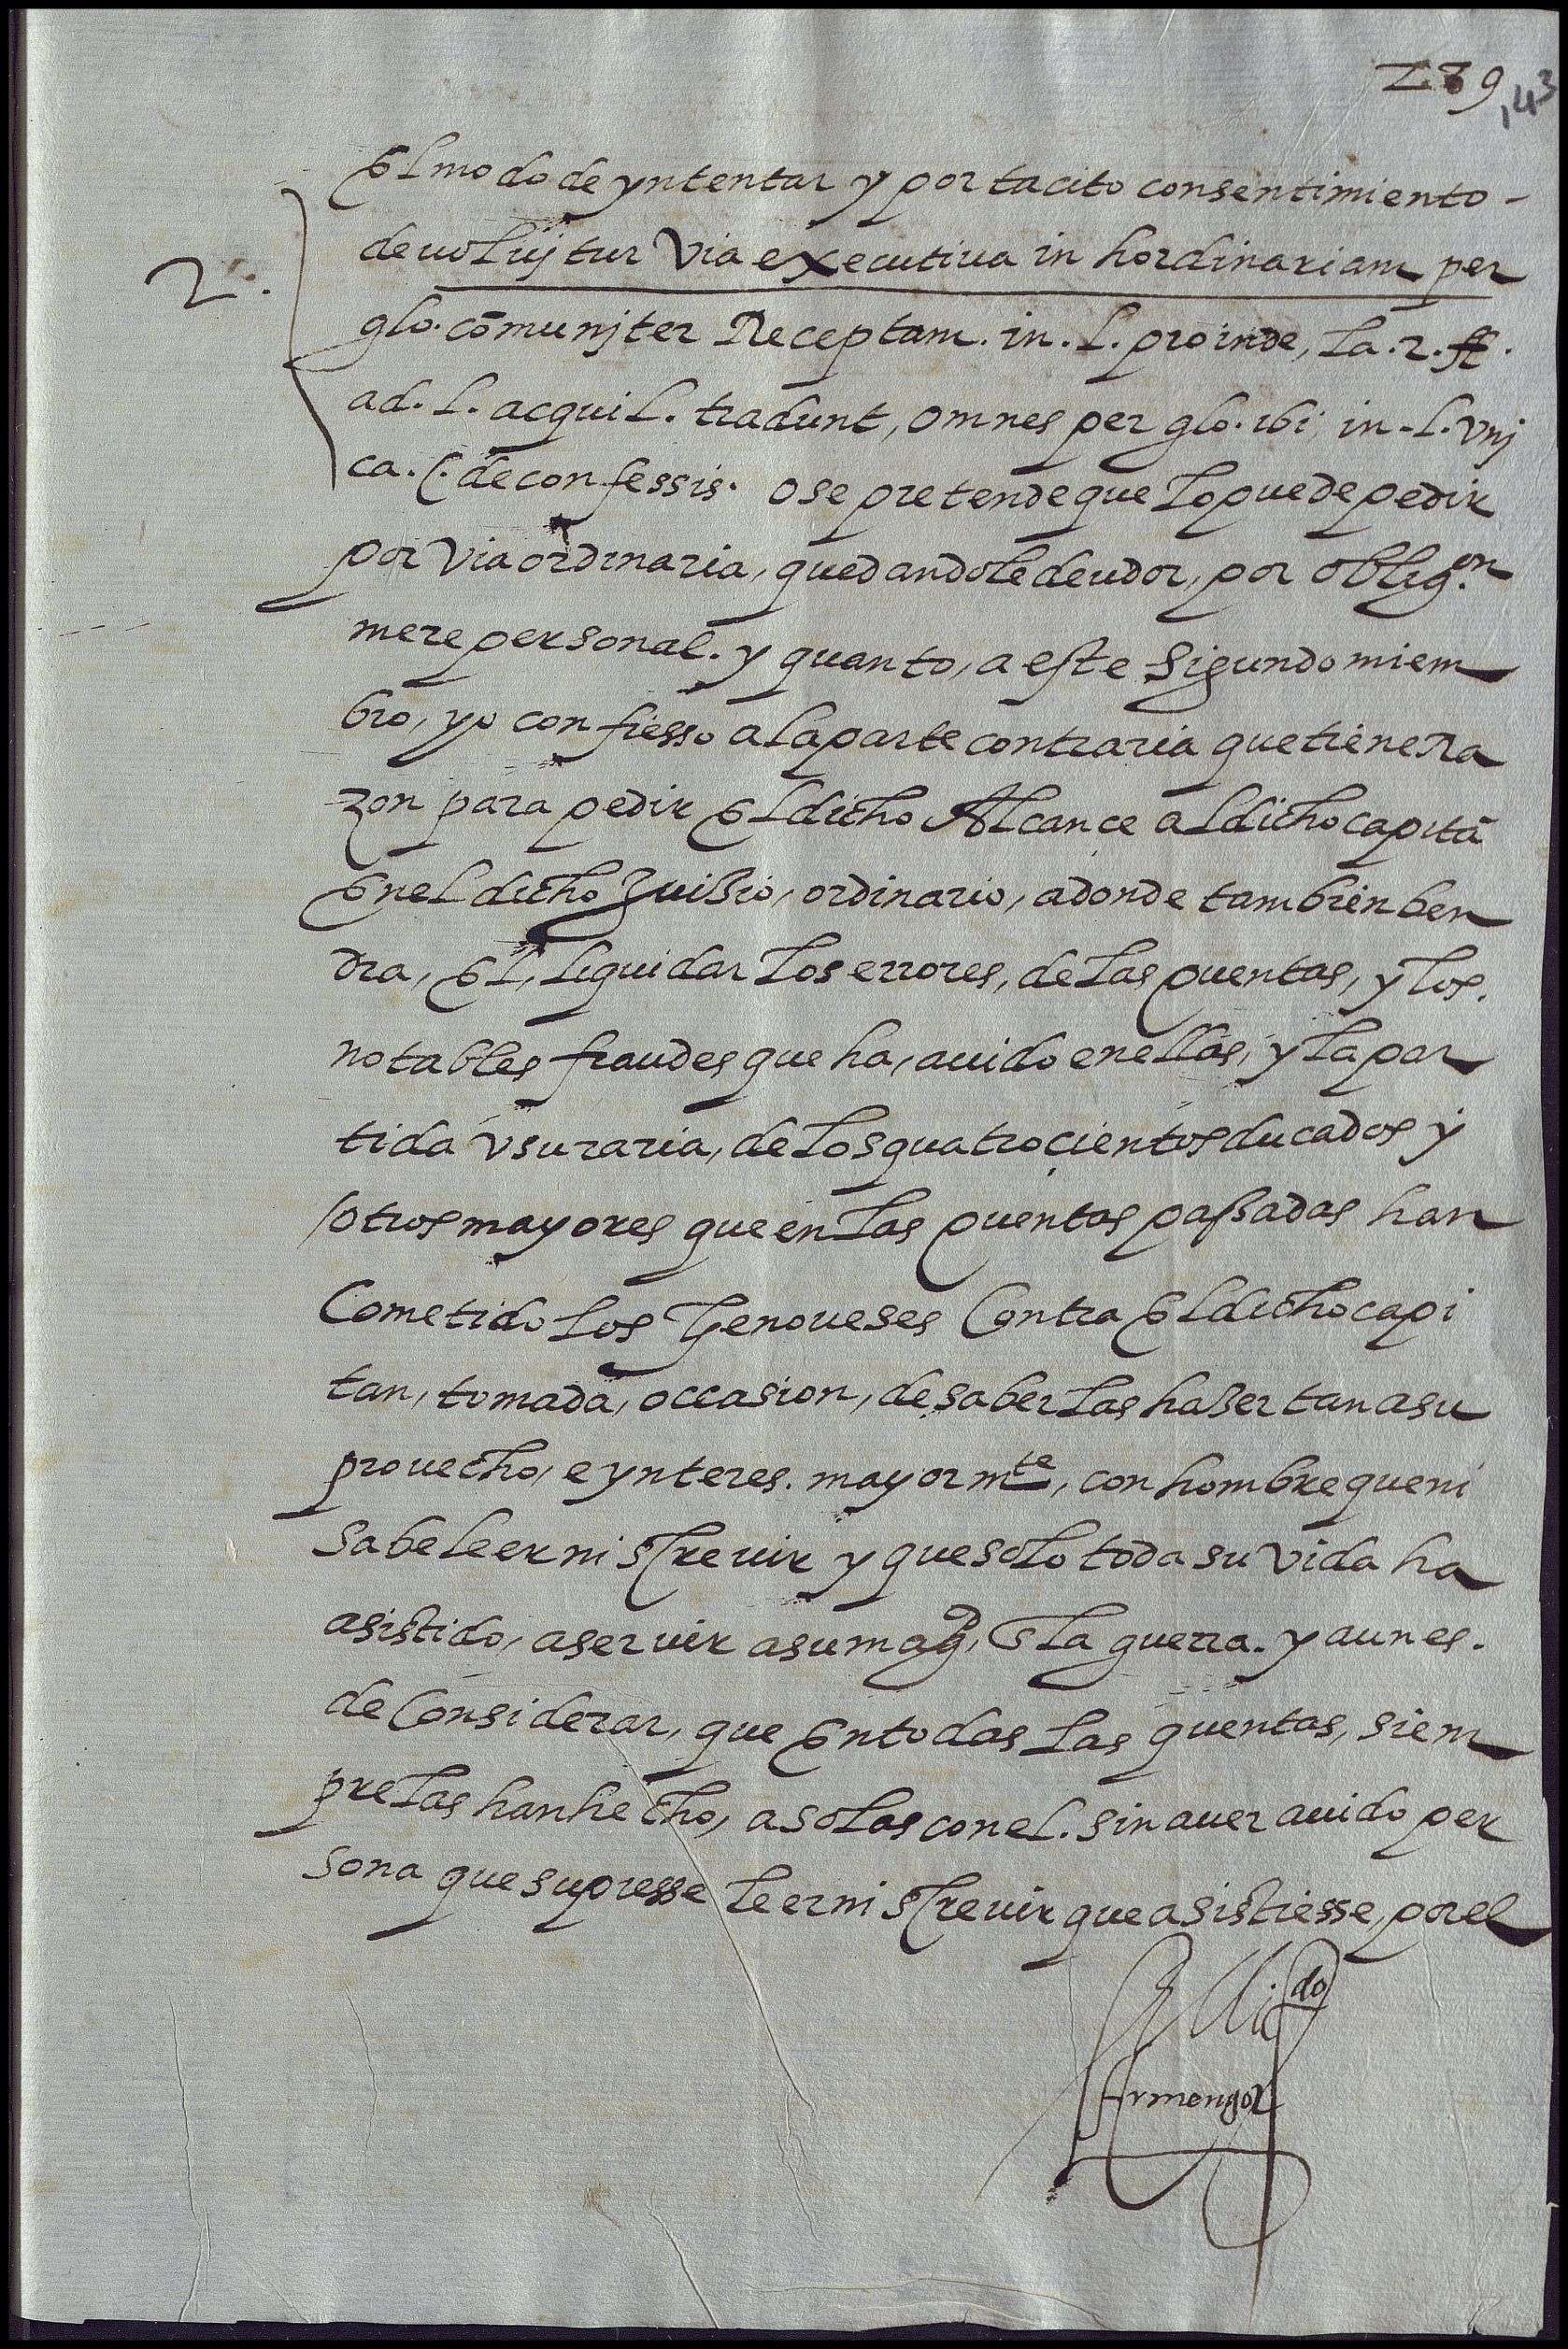 289
143
El modo de yntentar y por tacito consentimiento -
2. deuoluitur via executiua in hordinariam per
glo. cõmunjter Receptam. in. l. proinde, la. 2. ff.
ad. l. acquil. tradunt, omnes per glo. ibi, in. l. vnj
ca. C. de confessis. o se pretende que lo puede pedir
por via ordinaria, quedandole deudor, por oblig.on
mere personal. y quanto, a este sigundo miem
bro, yo confiesso a la parte contraria que tiene Ra
zon para pedir El dicho Alcance al dicho capitã
En el dicho Juisio, ordinario, adonde tambien ben
dra, El, liquidar los errores, de las quentas, y los.
notables fraudes que ha, auido en ellas, y la par
tida vsuraria, de los quatrocientos ducados y
otros mayores que en las quentas passadas han
Cometido los Genoueses Contra El dicho capi
tan, tomada, occasion, de saberlas haser tan a su
prouecho, e ynteres. mayormte, con hombre que ni
sabe leer ni screuir y que solo toda su vida ha
asistido, a seruir a su magd, E la guerra. y aun es.
de Considerar, que En todas las quentas, siem
pre las han hecho, a solas con el. sin auer auido per
sona que supiesse leer ni screuir que asistiesse, por el
El Lido
Armengol